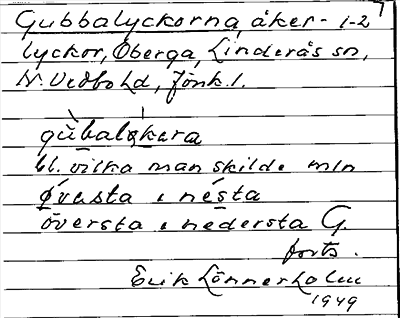 Gubbalyckorna, åker - 1-2
lyckor, Öberga, Linderås sn,
N. Vedbo hd, Jönk. l.
gùbalykara
bl. vilka man skilde mln
øvasta o nésta
översta o nedersta G.
forts.
Erik Lönnerholm
1949